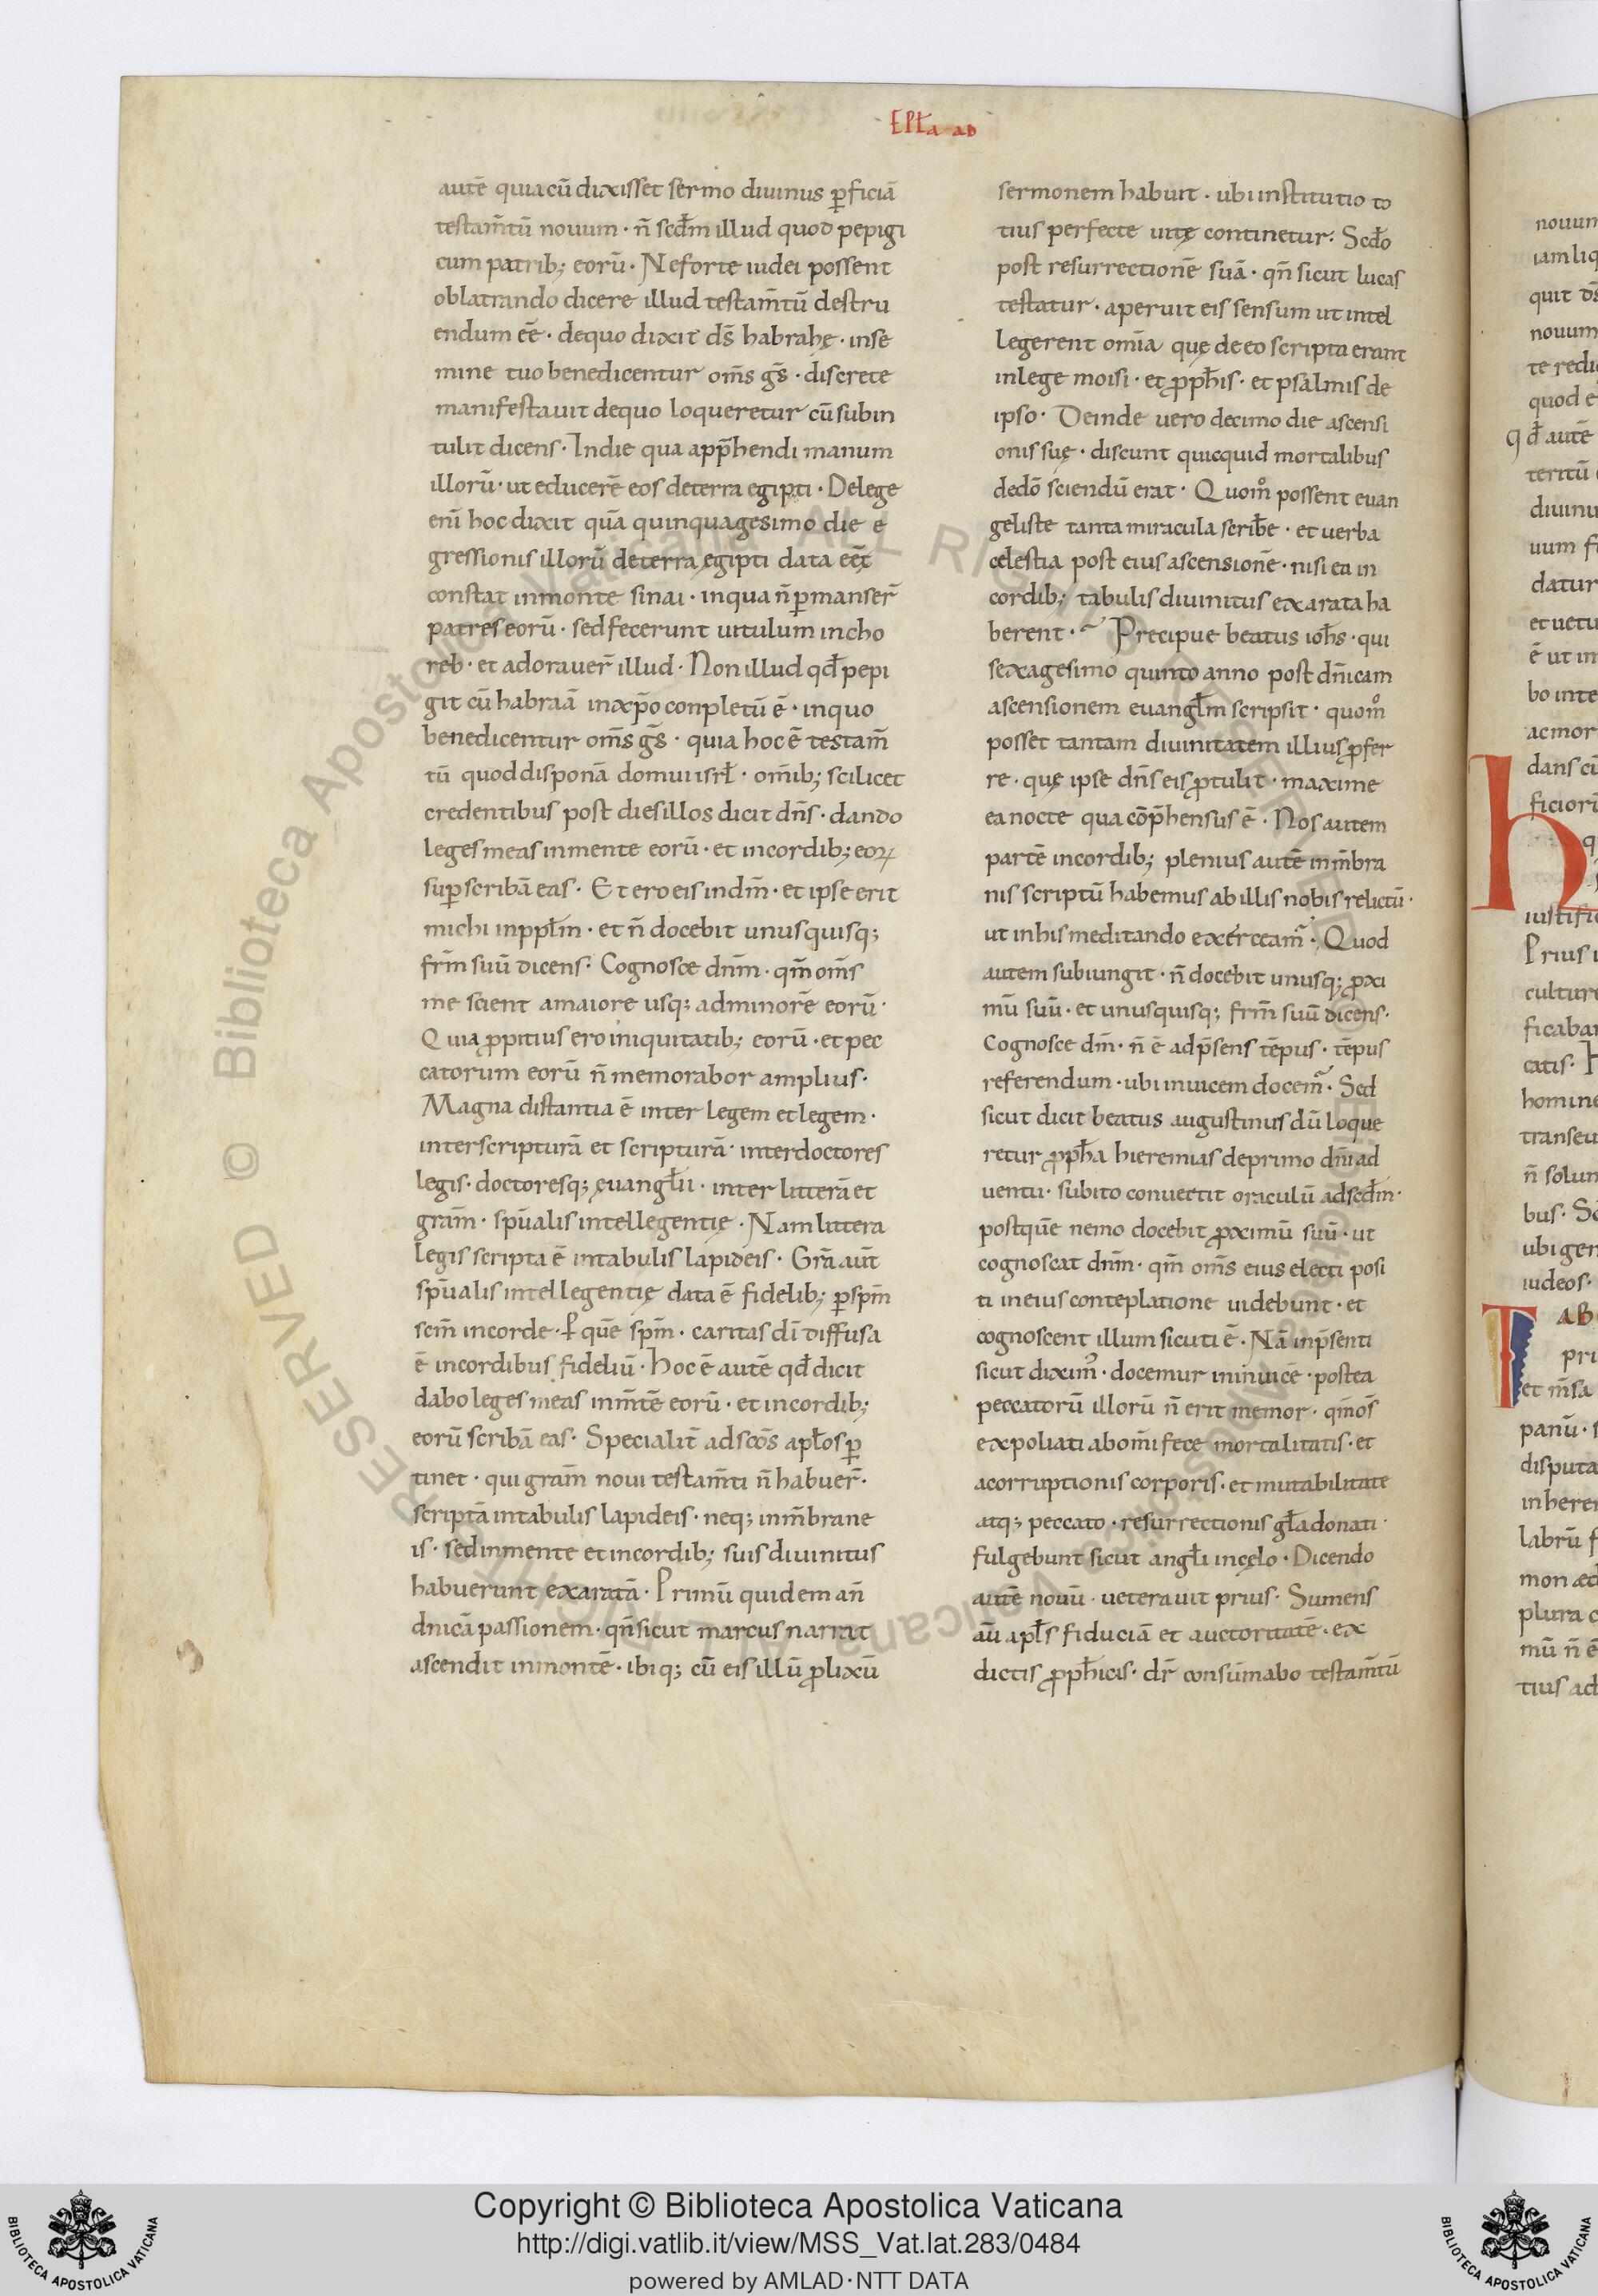 EPŁa ad
autē quia cū dixisset sermo diuinus ꝑficiā
testam̄tū nouum · n̄ scd̄m illud quod pepigi
cum patrib; eorū · Ne forte iudei possent
oblatrando dicere illud testam̄tū destru
endum eē · de quo dixit ds̄ habrahę · in se
mine tuo benedicentur om̄s gs̄ · discrete
manifestauit de quo loqueretur cū subin
tulit dicens · In die qua app̄hendi manum
illorū · ut educerē eos de terra egipti · De lege
enī hoc dixit qūa quinquagesimo die e
gressionis illorū de terra egipti data eēt
constat in monte sinai · in qua n̄ ꝑmanser̄
patres eorū · sed fecerunt uitulum in cho
reb · et adorauer̄ illud · Non illud qd̄ pepi
git cū habraā in xp̄o conpletū ē · in quo
benedicentur om̄s gs̄ · quia hoc ē testam̄
tū quod disponā domui isrł · om̄ib; scilicet
credentibus post dies illos dicit dn̄s · dando
leges meas in mente eorū · et in cordib; eoꝝ
suꝑscribā eas · Et ero eis in dm̄ · et ipse erit
michi in ppłm · et n̄ docebit unusquisq;
fr̄m suū dicens · Cognosce dnm̄ · qm̄ om̄s
me scient a maiore usq; ad minorē eorū ·
Quia ꝓpitius ero iniquitatib; eorū · et pec
catorum eorū n̄ memorabor amplius ·
Magna distantia ē inter legem et legem ·
inter scripturā et scripturā · inter doctores
legis · doctoresq; ęuangłii · inter litterā et
gram̄ · sp̄ualis intellegentię · Nam littera
legis scripta ē in tabulis lapideis · Gr̄a aut̄
sp̄ualis intellegentię data ē fidelib; ꝑ spm̄
scm̄ in corde · ꝑ quē spm̄ · caritas dī diffusa
ē in cordibus fideliū · Hoc ē autē qd̄ dicit
dabo leges meas in m̄tē eorū · et in cordib;
eorū scribā eas · Specialit̄ ad scōs apłos ꝑ
tinet · qui gram̄ noui testam̄ti n̄ habuer̄ ·
scriptā in tabulis lapideis · neq; in m̄brane
is · sed in mente et in cordib; suis diuinitus
habuerunt exaratā · Primū quidem an̄
dnicā passionem · qn̄ sicut marcus narrat
ascendit in montē · ibiq; cū eis illū ꝓlixū
sermonem habuit · ubi institutio to
tius perfecte uitę continetur · Scd̄o
post resurrectionē suā · qn̄ sicut lucas
testatur · aperuit eis sensum ut intel
legerent om̄ia quę de eo scripta erant
in lege moisi · et ꝓpħis · et psalmis de
ipso · Deinde uero decimo die ascensi
onis suę · discunt quicquid mortalibus
de dō sciendū erat · Quom̊ possent euan
geliste tanta miracula scribe · et uerba
celestia post eius ascensionē · nisi ea in
cordib; tabulis diuinitus exarata ha
berent · Precipue beatus ioħs · qui
sexagesimo quinto anno post dn̄icam
ascensionem euangłm scripsit · quom̊
posset tantam diuinitatem illius ꝓfer
re · quę ipse dn̄s eis ꝓtulit · maxime
ea nocte qua cōp̄hensus ē · Nos autem
partē in cordib; plenius autē in m̄bra
nis scriptū habemus ab illis nobis relictū ·
ut in his meditando exerceam̄ · Quod
autem subiungit · n̄ docebit unusq; ꝓxi
mū suū · et unusquisq; frm̄ suū dicens ·
Cognosce dm̄ · n̄ ē ad p̄sens tēpus · tēpus
referendum · ubi inuicem docem̄ · Sed
sicut dicit beatus augustinus dū loque
retur ꝓpħa hieremias de primo dn̄i ad
uentu · subito conuertit oraculū ad scd̄m ·
postquē nemo docebit ꝓximū suū · ut
cognoscat dnm̄ · qm̄ om̄s eius electi posi
ti in eius conteplatione uidebunt · et
cognoscent illum sicuti ē · Nā in p̄senti
sicut diximꝰ · docemur in inuicē · postea
peccatorū illorū n̄ erit memor · qm̄ os̄
expoliati ab om̄i fece mortalitatis · et
a corruptionis corporis · et mutabilitate
atq; peccato · resurrectionis gła donati ·
fulgebunt sicut angłi in cęlo · Dicendo
autē nouū · ueterauit prius · Sumens
aū apłs fiduciā et auctoritatē · ex
dictis ꝓpħicis · dr̄ consūmabo testam̄tū
nouum
iam liq
quit ds̄
nouum
te redi
quod e
qd̄ autē
teritū
diuinu
uum f
datur
et uetu
ē ut in
bo inte
ac mor
dans cū
ficior
iustific
Prius
culture
ficabar
catis · h
homine
transeu
n̄ solum
bus · Sc
ubi gen
iudeos ·
AB
pri
et m̄sa
panū · s
disputa
in here
labrū f
mon æd
plura c
mū n̄ ē
tius ad
© Biblioteca Apostolica Vaticana ALL RIGHTS RESERVED
Copyright © Biblioteca Apostolica Vaticana
http://digi.vatlib.it/view/MSS_Vat.lat.283/0484
powered by AMLAD·NTT DATA
BIBLIOTECA APOSTOLICA VATICANA
BIBLIOTECA APOSTOLICA VATICANA